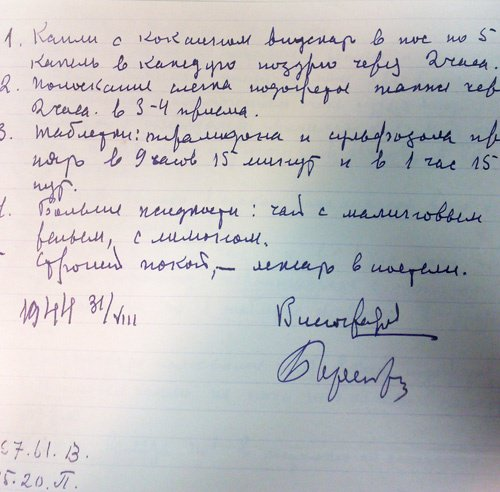 1. Капли с кокаином впускать в нос по 5
капель в каждую ноздрю через 2 часа.
2. Полоскание слегка подогретое также чер
2 часа. в 3-4 приема.
3. Таблетки: пирамидона и сульфазола пр
нять в 9 часов 15 минут и в 1 час 15
нут.
4. Больше жидкости: чай с малиновым
реньем, с лимоном.
Строгий покой, – лежать в постели.
1944 31/VIII
Виноградов